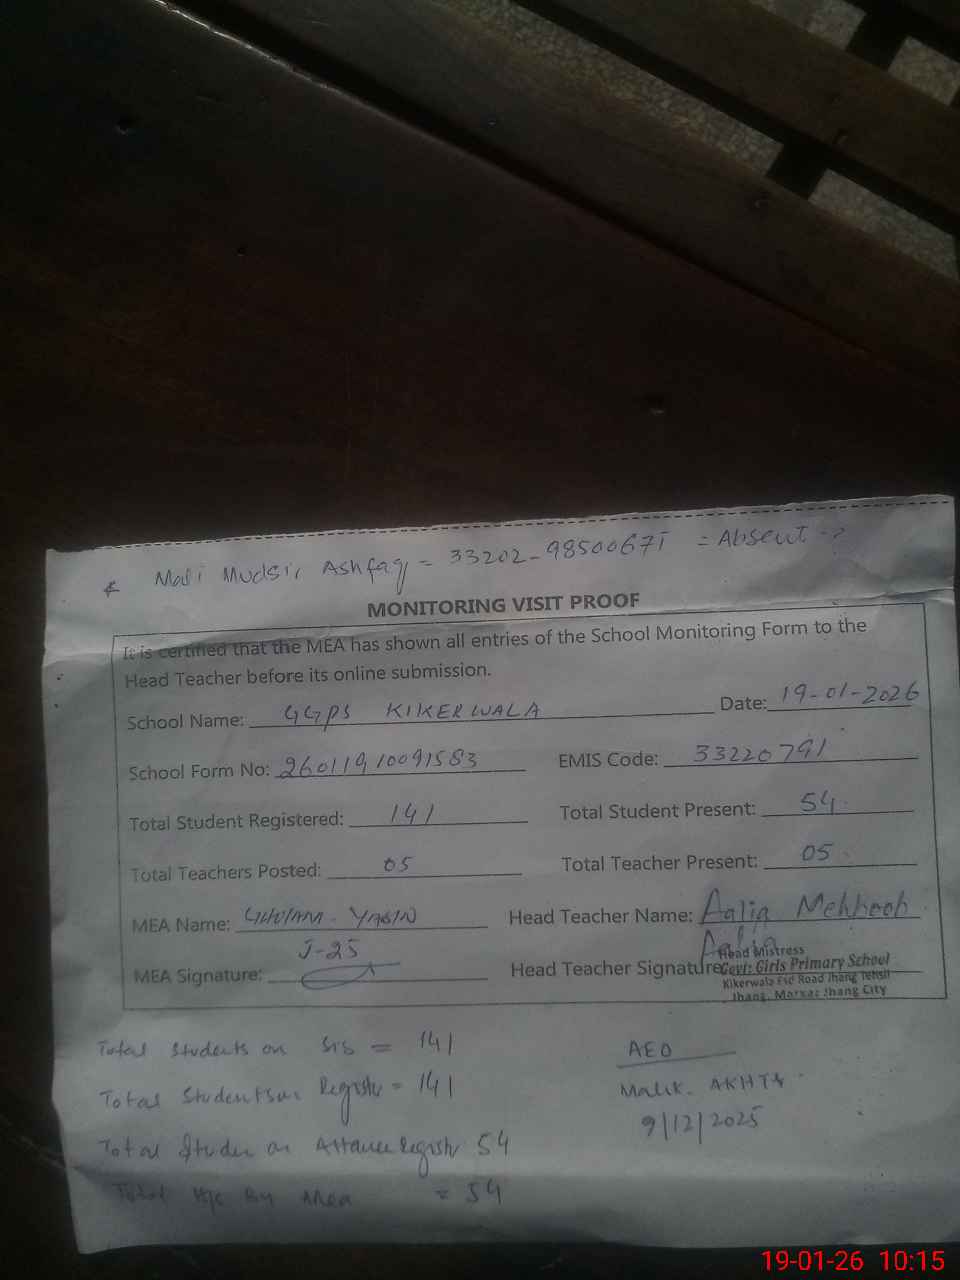 Mali Mudsir Ashfaq = 33202-98500671 = Absent
MONITORING VISIT PROOF
It is certified that the MEA has shown all entries of the School Monitoring Form to the
Head Teacher before its online submission.
School Name: GGPS KIKERWALA Date: 19-01-2026
School Form No: 26011910091583 EMIS Code: 33220791
Total Student Registered: 141 Total Student Present: 54
Total Teachers Posted: 05 Total Teacher Present: 05
MEA Name: GHULAM YASIN Head Teacher Name: Aalia Mehboob
J-25
MEA Signature: Head Teacher Signature:
Head Mistress
Govt: Girls Primary School
Kikerwala Fsd Road Jhang Tehsil
Jhang, Markaz Jhang City
Total Students on SIS = 141
Total Students on Register = 141
Total Studen on Attance Registr 54
Total H/c By Mea = 54
AEO
Malik. AKHTR
9/12/2025
19-01-26 10:15